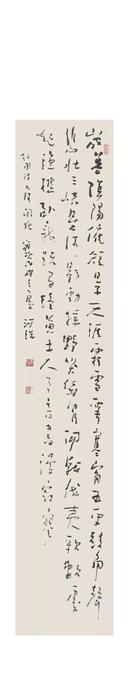 歲暮陰陽催短景天涯霜雪霽寒宵五更鼓角聲
悲壯三峽星河影動搖野哭幾家聞戰伐夷歌數處
起漁樵臥龍躍馬終黃土人事音書漫寂寥
杜甫詩 閣夜